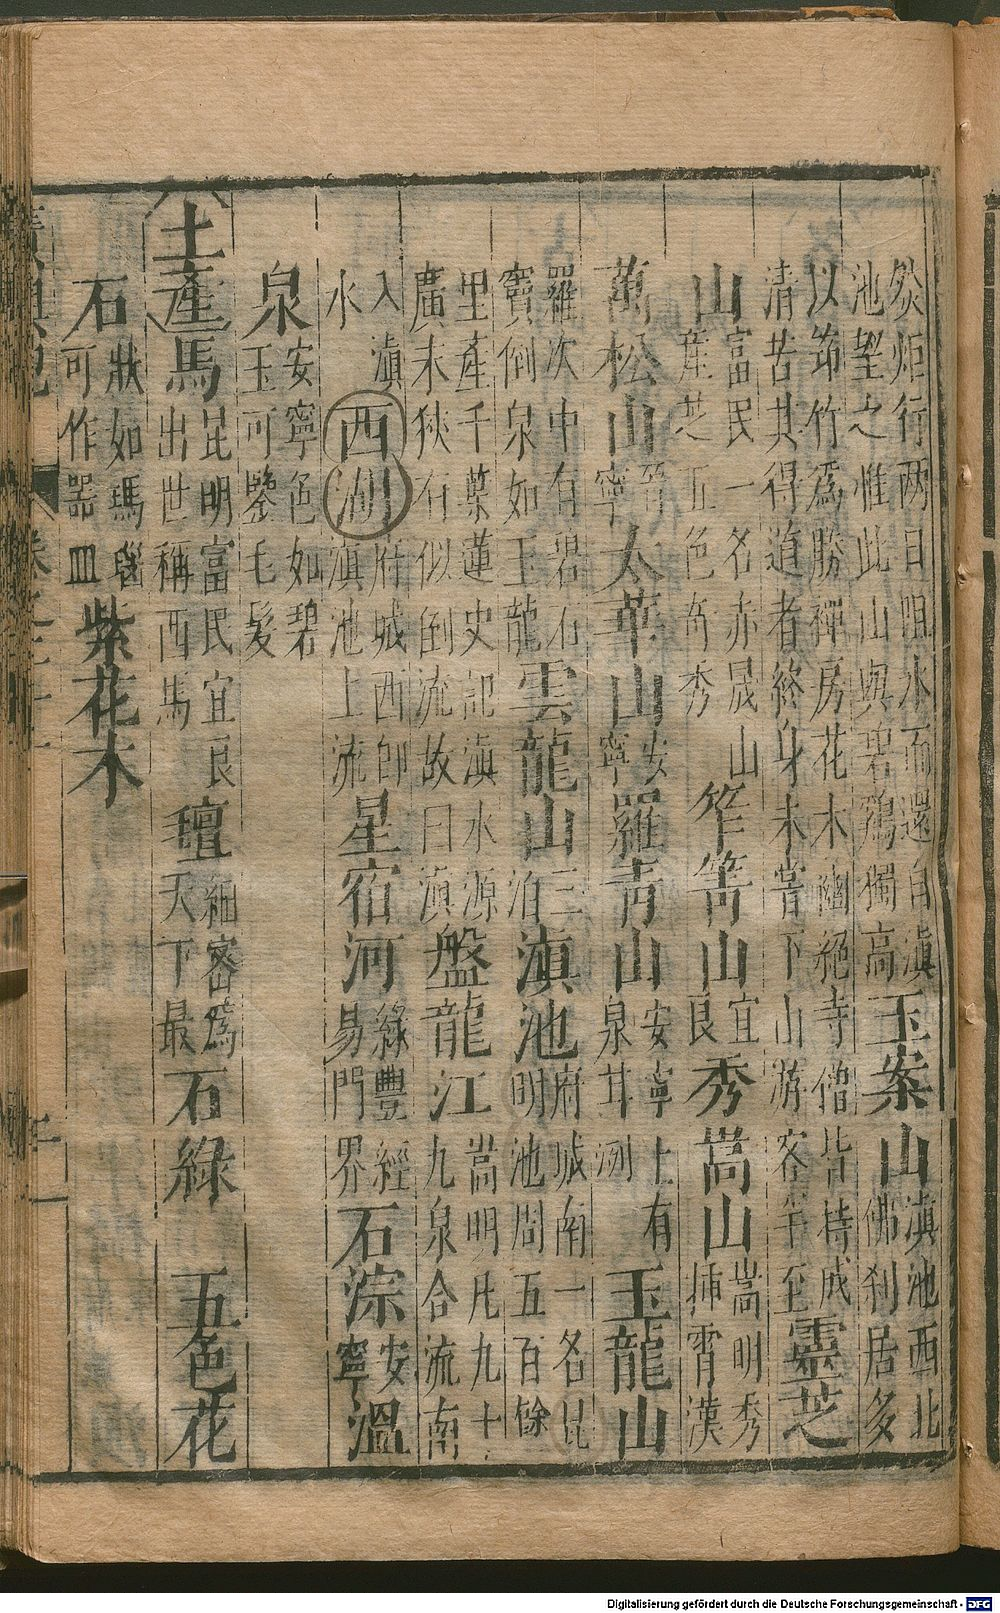 燃炬行兩日阻水而還自滇
池望之惟此山與碧鷄獨高
玉案山
滇池西北
佛刹居多
以筇竹爲勝禪房花木幽絕寺僧皆持戒
清苦其得道者終身未嘗下山游客罕至
靈芝
山
富民一名赤晟山
產芝五色奇秀
笮箐山
宜
良
秀嵩山
嵩明秀
挿霄漢
萬松山
晉
寧
太華山
安
寧
羅青山
安寧上有
泉茸冽
玉龍山
羅次中有碧石
竇倒泉如玉龍
雲龍山
三
泊
滇池
府城南一名昆
明池周五百餘
里產千葉蓮史記滇水源
廣末狹有似倒流故曰滇
盤龍江
嵩明凡九十
九泉合流南
入滇
水
西洲
府城西卽
滇池上流
星宿河
綠豐經
易門界
石淙
安
寧
溫
泉
安寧色如碧
玉可鑒毛髮
土產
馬
昆明富民宜良
出世稱西馬
氊
細密爲
天下最
石綠
五色花
石
狀如瑪瑙
可作器皿
紫花木
Digitalisierung gefördert durch die Deutsche Forschungsgemeinschaft - DFG